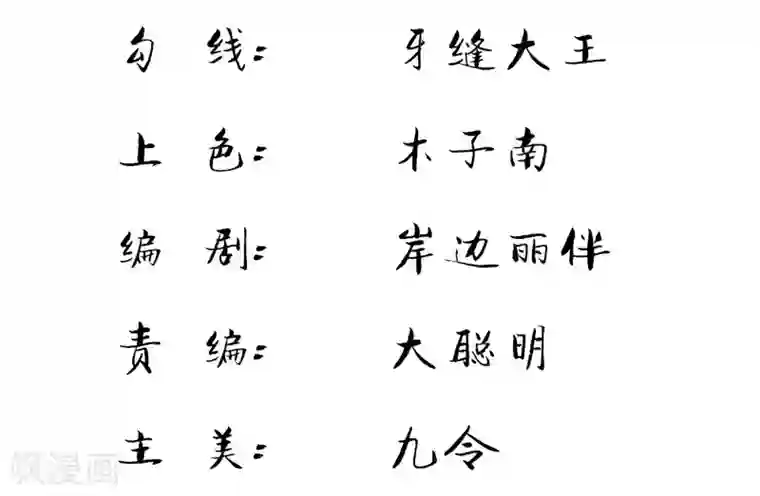 勾线: 牙缝大王
上色: 木子南
编剧: 岸边丽伴
责编: 大聪明
主美: 九令
飒漫画